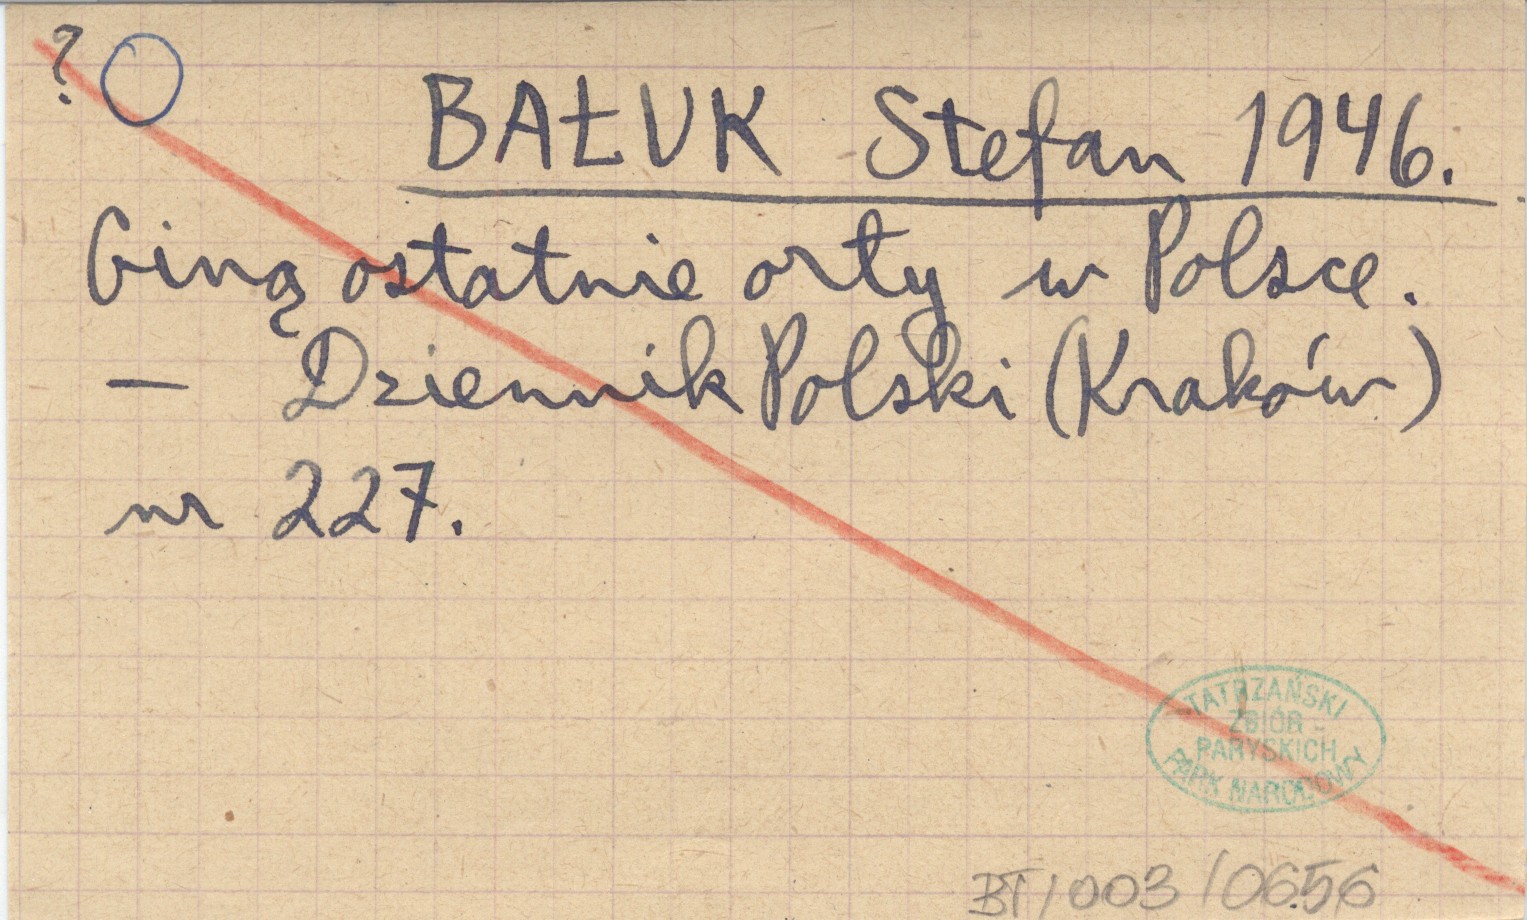 ?
BAŁUK Stefan 1946.
Giną ostatnie orły w Polsce.
— Dziennik Polski (Kraków)
nr 227.
TATRZAŃSKI
ZBIÓR
PARYSKICH
PARK NARODOWY
BT/003/0656